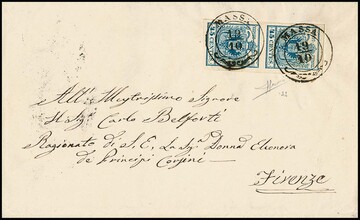 MASSA
19
10
MASSA
19
10
All' Illustrissimo Signore
Il Sigr Carlo Belforti
Ragionato di S. E. La Sigra Donna Eleonora
de Principi Corsini
Firenze